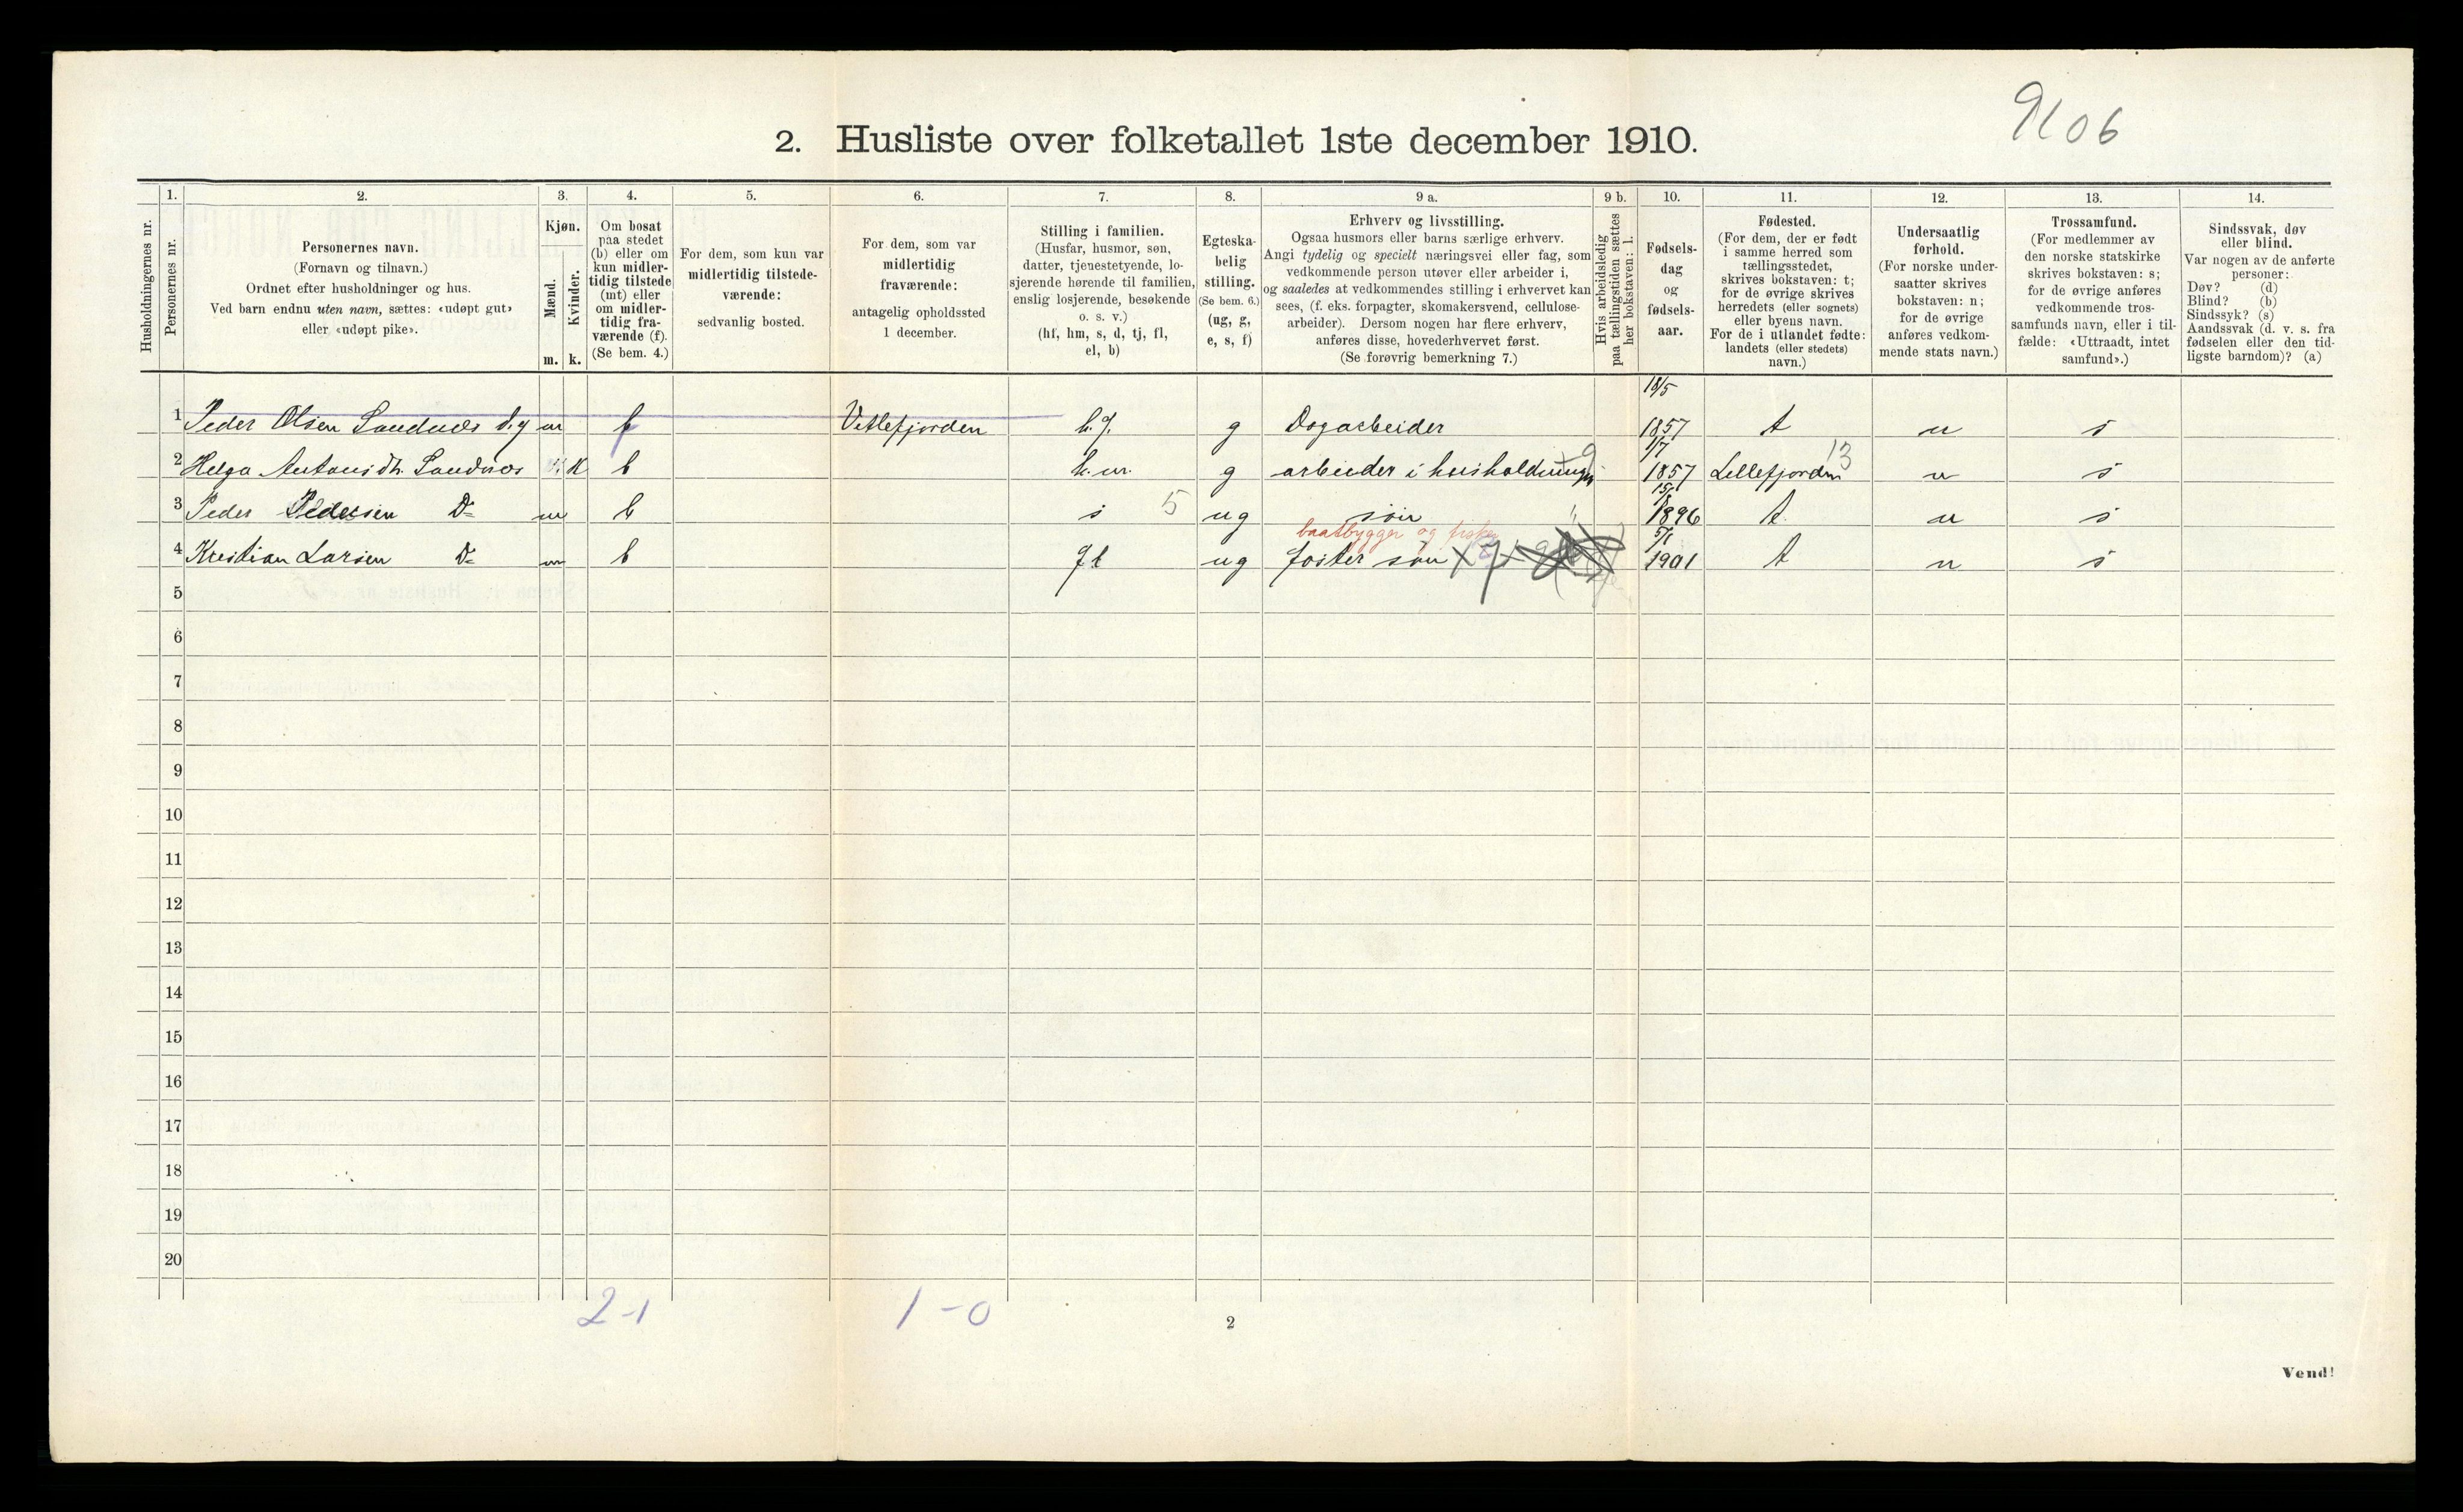 9106
2. Husliste over folketallet 1ste december 1910.
Husholdningernes nr.
1.
Personernes nr.
2.
Personernes navn.
(Fornavn og tilnavn.)
Ordnet efter husholdninger og hus.
Ved barn endnu uten navn, sættes: «udøpt gut»
eller «udøpt pike».
3.
Kjøn.
Mænd.
Kvinder.
m. k.
4.
Om bosat
paa stedet
(b) eller om
kun midler-
tidig tilstede
(mt) eller
om midler-
tidig fra-
værende (f).
(Se bem. 4.)
5.
For dem, som kun var
midlertidig tilstede-
værende:
sedvanlig bosted.
6.
For dem, som var
midlertidig
fraværende:
antagelig opholdssted
1 december.
7.
Stilling i familien.
(Husfar, husmor, søn,
datter, tjenestetyende, lo-
sjerende hørende til familien,
enslig losjerende, besøkende
o. s. v.)
(hf, hm, s, d, tj, fl,
el, b)
8.
Egteska-
belig
stilling.
(Se bem. 6.)
(ug, g,
e, s, f)
9 a.
Erhverv og livsstilling.
Ogsaa husmors eller barns særlige erhverv.
Angi tydelig og specielt næringsvei eller fag, som
vedkommende person utøver eller arbeider i,
og saaledes at vedkommendes stilling i erhvervet kan
sees, (f. eks. forpagter, skomakersvend, cellulose-
arbeider). Dersom nogen har flere erhverv,
anføres disse, hovederhvervet først.
(Se forøvrig bemerkning 7.)
9 b.
Hvis arbeidsledig
paa tællingstiden sættes
her bokstaven: l.
10.
Fødsels-
dag
og
fødsels-
aar.
11.
Fødested.
(For dem, der er født
i samme herred som
tællingsstedet,
skrives bokstaven: t;
for de øvrige skrives
herredets (eller sognets)
eller byens navn.
For de i utlandet fødte:
landets (eller stedets)
navn.)
12.
Undersaatlig
forhold.
(For norske under-
saatter skrives
bokstaven: n;
for de øvrige
anføres vedkom-
mende stats navn.)
13.
Trossamfund.
(For medlemmer av
den norske statskirke
skrives bokstaven: s;
for de øvrige anføres
vedkommende tros-
samfunds navn, eller i til-
fælde: «Uttraadt, intet
samfund».)
14.
Sindssvak, døv
eller blind.
Var nogen av de anførte
personer:
Døv? (d)
Blind? (b)
Sindssyk? (s)
Aandssvak (d. v. s. fra
fødselen eller den tid-
ligste barndom)? (a)
1 Peder Olsen Sandnæs m b Vetlefjorden h.f. g Dagarbeider 18/5 1857 t n s
2 Helga Antonsdtr. Sandnæs K b h.m. g arbeider i husholdningen 9 1/7 1857 Lellefjorden 13 n s
3 Peder Pedersen Do m b s 5 ug søn 1896 t n s
baatbygger og fisker
4 Kristian Larsen Do m b fl ug foster søn x 7 5/1 1901 t n s
5
6
7
8
9
10
11
12
13
14
15
16
17
18
19
20
2-1 1-0
2
Vend!